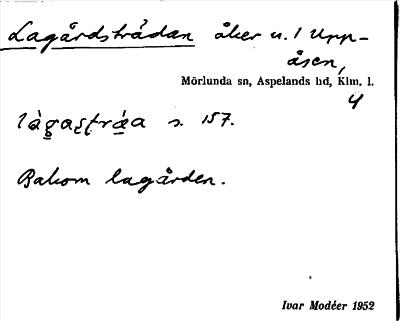 Lagårdstrådan åker u. 1 Upp-
åsen,
Mörlunda sn, Aspelands hd, Klm. l.
4
s. 157.
Bakom lagården.
Ivar Modéer 1952